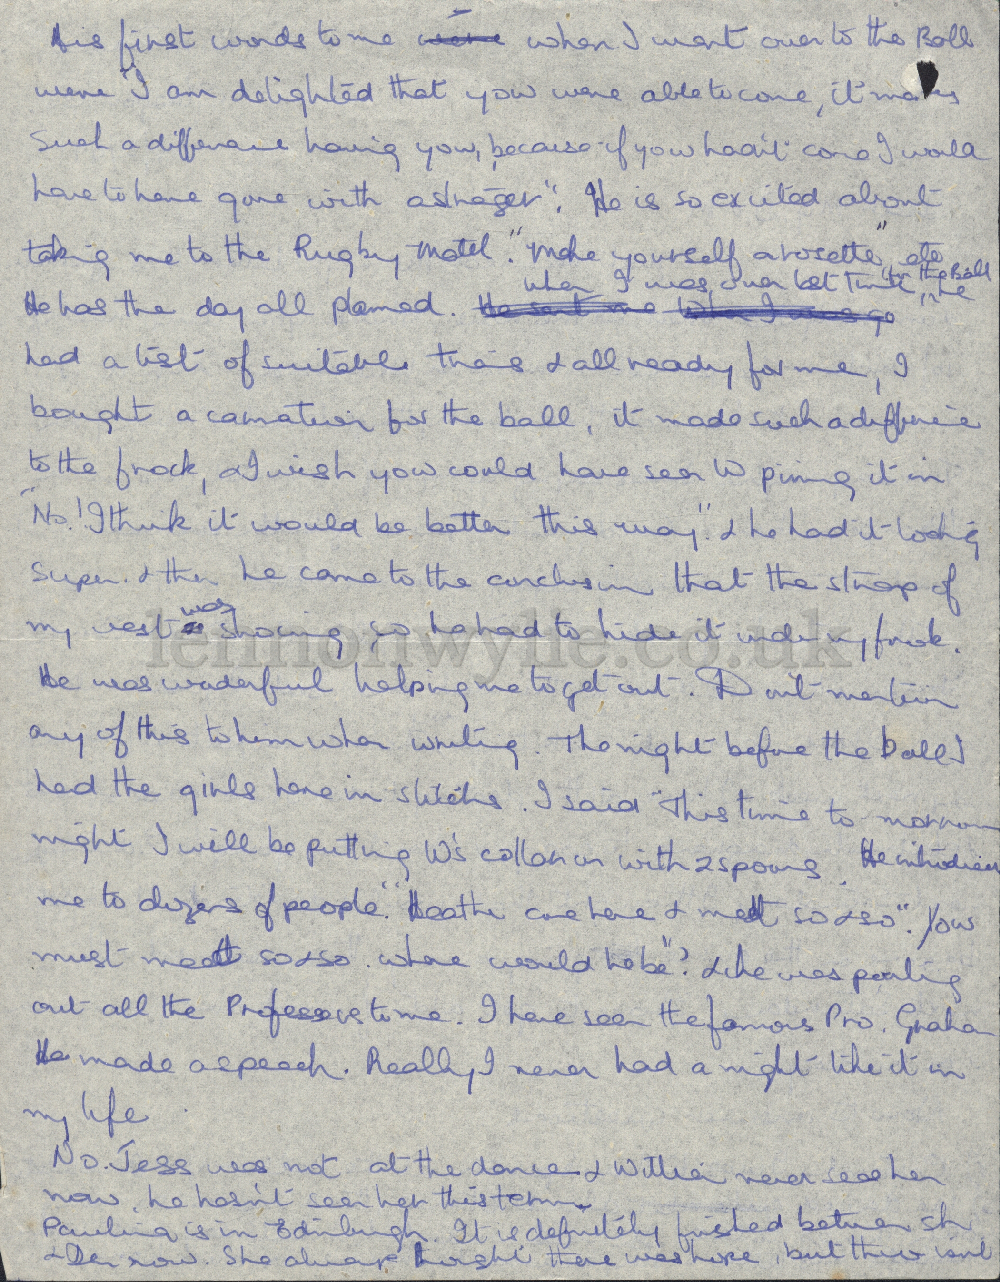 His first words to me were when I went over to the Ball
were "I am delighted that you were able to come, it makes
such a difference having you, because if you hadn't come I would
have to have gone with a stranger". He is so excited about
taking me to the Rugby Match. "Make yourself a rosette", etc
when I was over last time the Ball
He has the day all planned. He sent me When I was go he
had a list of suitable trains & all ready for me, I
bought a carnation for the ball, it made such a difference
to the frock, & I wish you could have seen W pining it in
"No! I think it would be better this way". & he had it looking
super. & then he came to the conclusion that the strap of
my vest was showing so he had to hide it under my frock.
lennonwylie.co.uk
He was wonderful helping me to get out. Don't mention
any of this to him when writing. The night before the ball I
had the girls here in stitches. I said "This time to morrow
night I will be putting W's collar on with 2 spoons. He introduced
me to dozens of people. "Heather come here & meet so & so". You
must meet so & so. where would he be"? & he was pointing
out all the Professors to me. I have seen the famous Pro. Graham
He made a speech. Really, I never had a night like it in
my life.
No. Jess was not at the dance & Willie never sees her
now, he hasn't seen her this term.
Paulina is in Edinburgh. It is definitely finished between sh
& Des now. She always thought there was hope, but there isn't